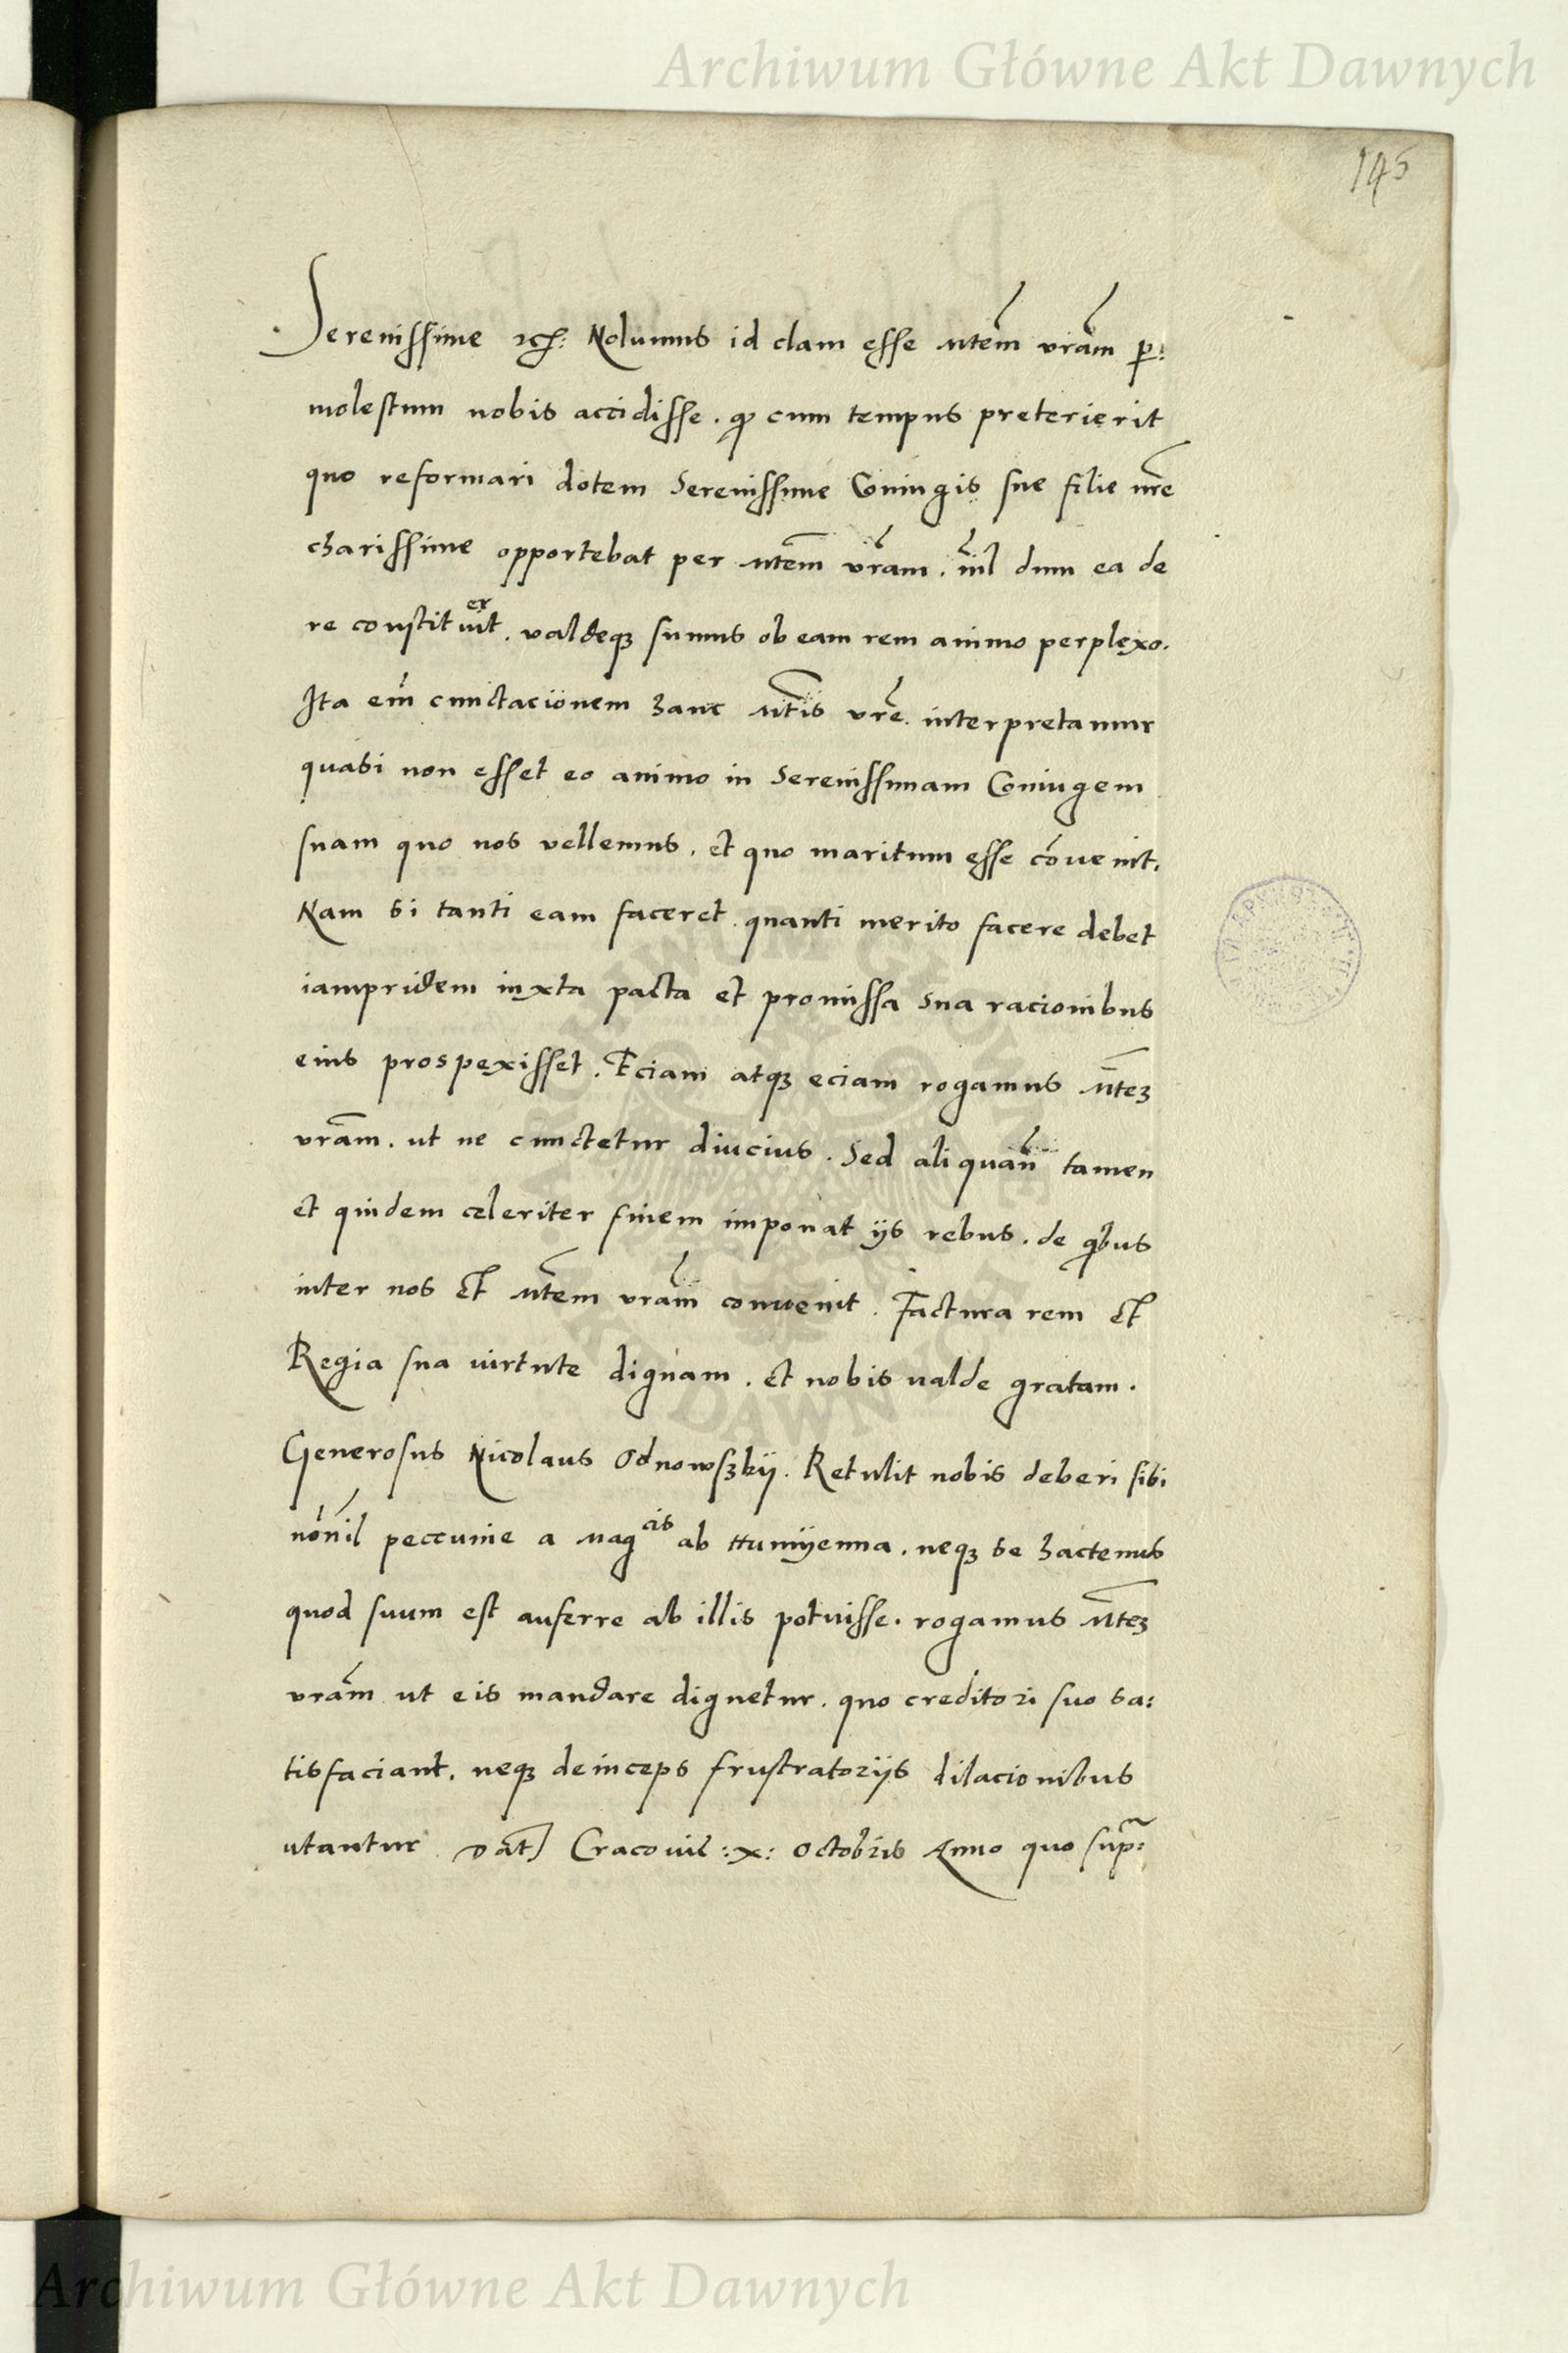 Archiwum Główne Akt Dawnych
145
Serenissime etc: Nolumus id clam esse Mtem vram per:
molestum nobis accidisse. quod cum tempus preterierit
quo reformari dotem Serenissime Coniugis sue filie nre
charissime opportebat per Mtem vram. nil dum ea de
re constituerit. valdeqз sumus ob eam rem animo perplexo.
Ita em cunctacionem hanc Mtis vre. interpretamur
quasi non esset eo animo in Serenissimam Coniugem
suam quo nos vellemus. et quo maritum esse cōvenit.
Nam si tanti eam faceret. quanti merito facere debet
iampridem iuxta pacta et promissa sua racionibus
eius prospexisset. Eciam atqз eciam rogamus Mteз
vram. ut ne cunctetur diucius. Sed aliquan tamen
et quidem celeriter finem imponat iis rebus. de qibus
inter nos et Mtem vram convenit. Factura rem et
Regia sua virtute dignam. et nobis valde gratam.
Generosus Nicolaus Odnowsзkij. Retulit nobis deberi sibi
nōnil peccunie a Magcis ab Humyenna. neqз se hactenus
quod suum est auferre ab illis potuisse. rogamus Mteз
vram ut eis mandare dignetur. quo creditori suo sa:
tisfaciant. neqз deinceps frustratoriis dilacionibus
utantur Dat Cracovie :x: Octobris Anno quo supra:
Archiwum Główne Akt Dawnych